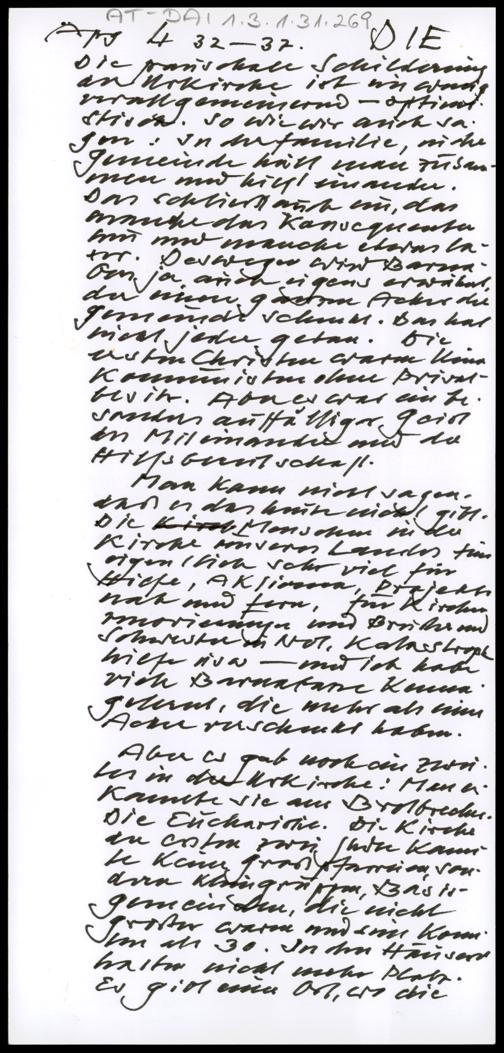 AT-DAI 1.3.1.31.269
Apg 4 32-37. DIE
Die pauschale Schilderung
der Urkirche ist ein wenig
verallgemeinernd - optimi
stisch. So wie wir auch sa-
gen: In der Familie, in der
Gemeinde hält man zusam-
men und hilft einander.
Das schließt auch ein, das
manche das Konsequenter
tun und manche etwas la-
xer. Deswegen wird Barna-
bas ja auch eigens erwähnt,
der einen ganzen Acker der
Gemeinde schenkt. Das hat
nicht jeder getan. Die
ersten Christen waren keine
Kommunisten ohne Privat-
besitz. Aber es war ein be-
sonders auffälliger Geist
des Miteinander und der
Hilfsbereitschaft.
Man kann nicht sagen,
daß es das heute nicht gibt.
Die Menschen in der
Kirche unseres Landes tun
eigentlich sehr viel für
Hilfe, Aktionen, Projekte
nah und fern, für Kirchen
renovierungen und Brüder und
Schwestern in Not, Katastroph
hilfe usw - und ich habe
viele Barnabasse kennen
gelernt, die mehr als einen
Acker verschenkt haben.
Aber es gab noch ein zwei-
tes in der Urkirche: Man er-
kannte sie am Brotbrechen.
Die Eucharistie. Die Kirche
der ersten zwei Jhdte kann-
te keine Großpfarreien, son-
dern Kleingruppen, Basis-
gemeinden, die nicht
größer waren und sein konn-
ten als 30. In den Häusern
hatten nicht mehr Platz.
Es gibt einen Ort, wo die